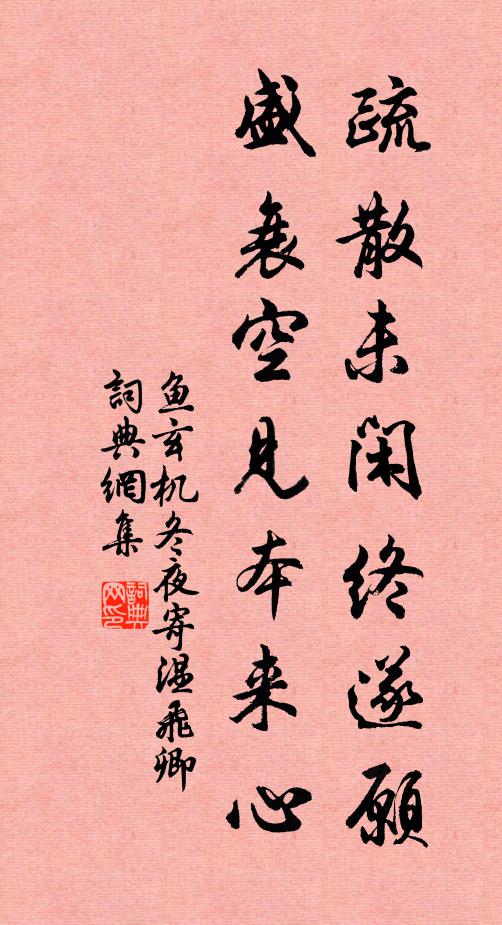 疏散未閑終遂願
盛衰空見本来心
鱼玄机冬夜寄温飛卿
詞典網集
詞典
网印